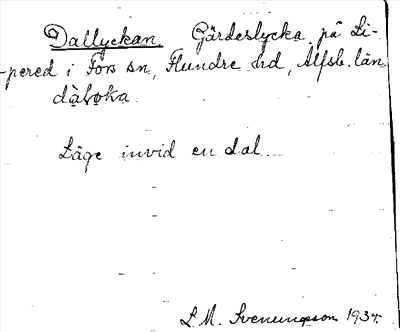 Dallyckan. Gärdeslycka på Li-
-pered i Fors sn, Flundre hd, Älfsb. län
dàłoka
Läge invid en dal.
L. M. Svenungsson 1934.